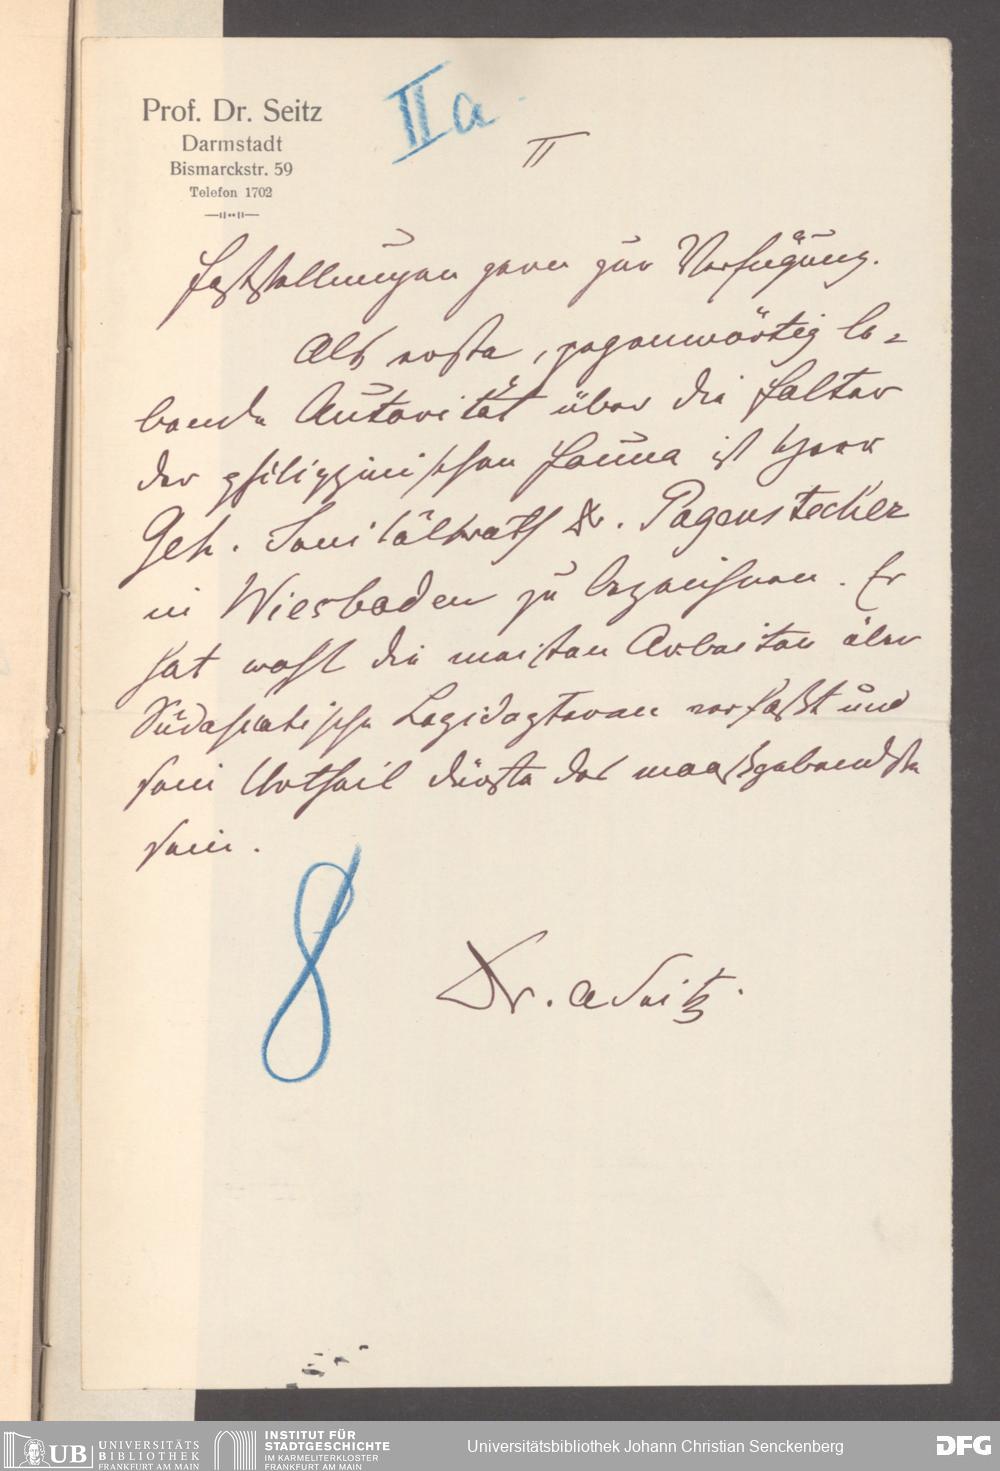 Prof. Dr. Seitz
Darmstadt
Bismarckstr. 59
Telefon 1702
IIa
II
Feststellungen gern zur Verfügung.
Als erste, gegenwärtig le-
bende Autorität über die Falter
der philippinischen Fauna ist Herr
Geh. Sanitätsrath Dr. Pagenstecher
in Wiesbaden zu bezeichnen. Er
hat wohl die meisten Arbeiten über
Südasiatische Lepidopteren verfaßt und
sein Urtheil dürfte das maaßgebendste
sein.
8
Dr. A Seitz.
UB UNIVERSITÄTS
BIBLIOTHEK
FRANKFURT AM MAIN
INSTITUT FÜR
STADTGESCHICHTE
IM KARMELITERKLOSTER
FRANKFURT AM MAIN
Universitätsbibliothek Johann Christian Senckenberg
DFG